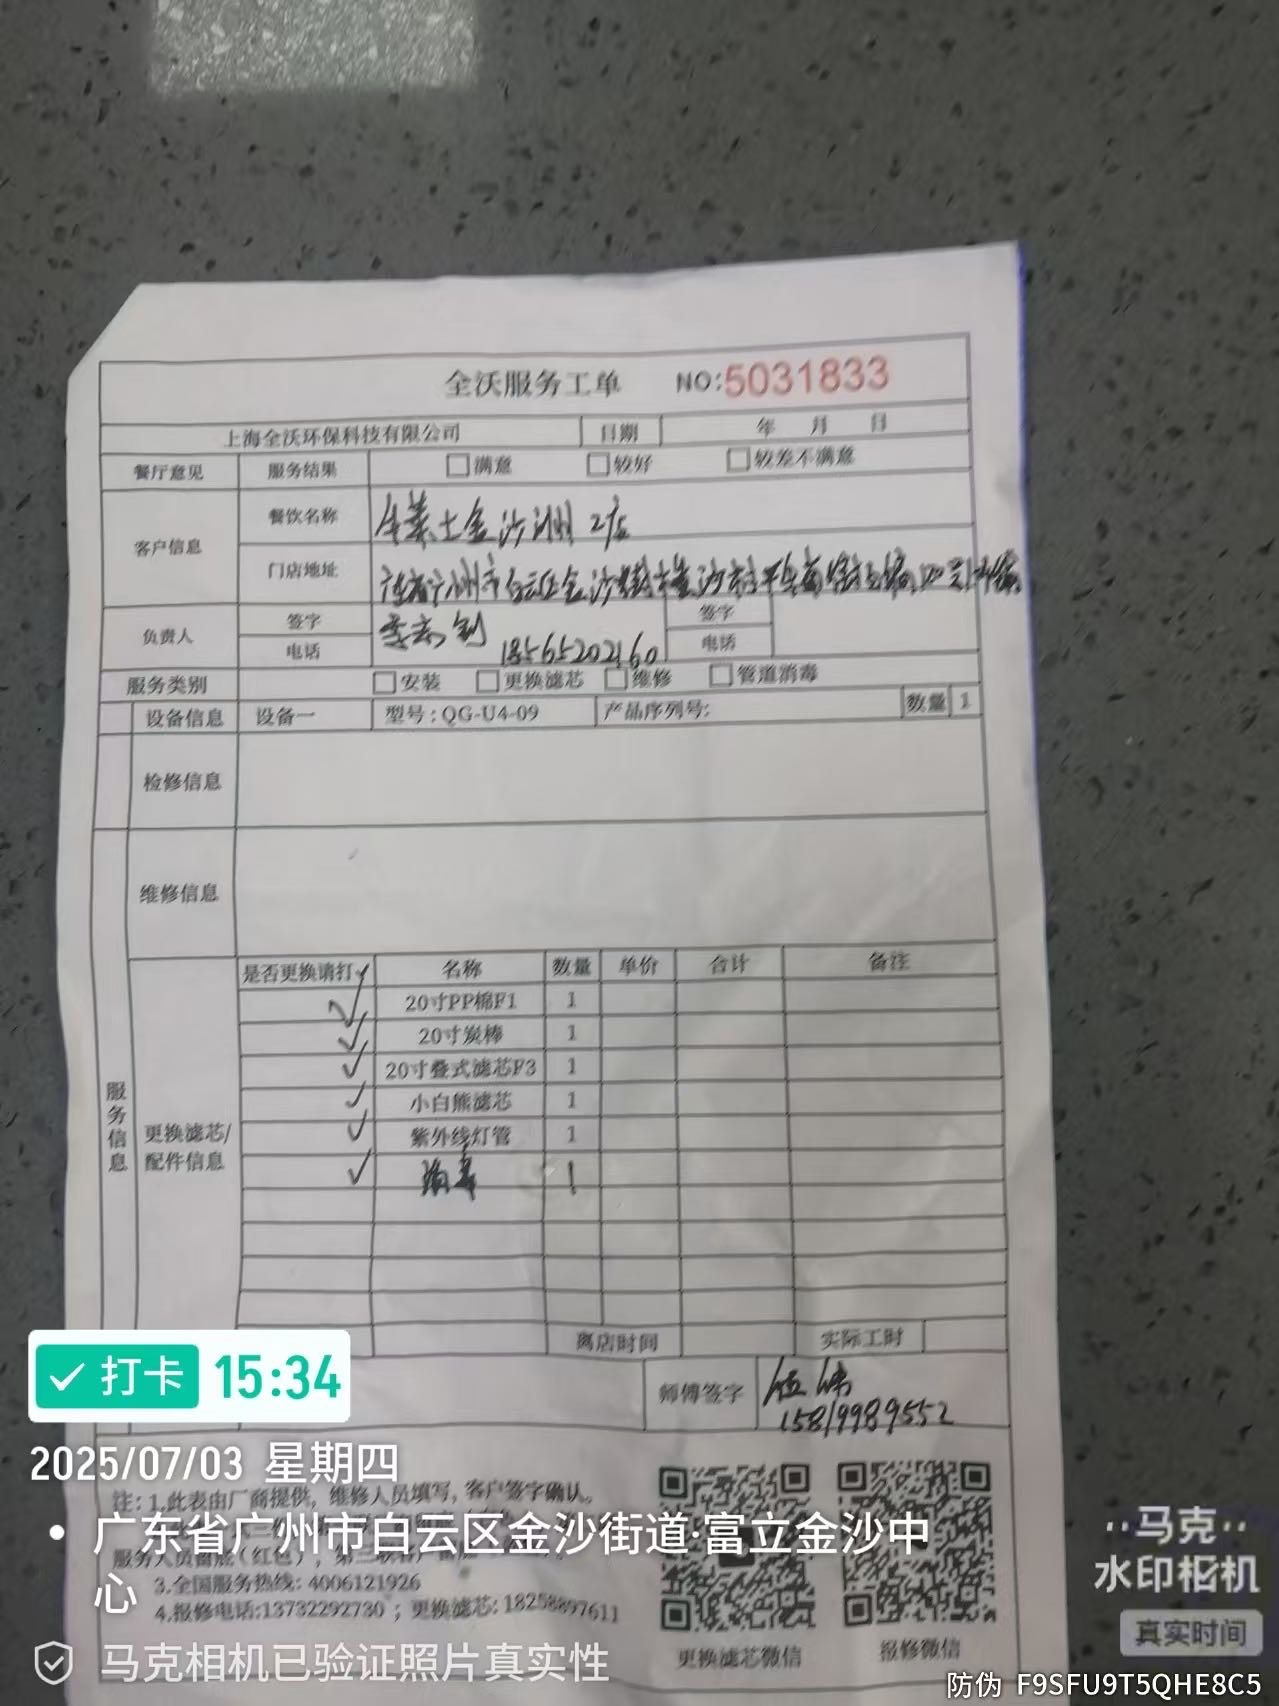 全沃服务工单 NO:5031833
上海全沃环保科技有限公司 日期 年 月 日
餐厅意见 服务结果 □满意 □较好 □较差不满意
客户信息 餐饮名称 金沙洲2店
门店地址 广州市白云区金沙街
负责人 签字 签字
电话 18565202160 电话
服务类别 □安装 □更换滤芯 □维修 □管道消毒
设备信息 设备一 型号:QG-U4-09 产品序列号: 数量 1
检修信息
维修信息
服务信息
更换滤芯/配件信息
是否更换请打✓ 名称 数量 单价 合计 备注
✓ 20寸PP棉F1 1
✓ 20寸炭棒 1
✓ 20寸叠式滤芯F3 1
✓ 小白熊滤芯 1
✓ 紫外线灯管 1
✓ 消毒 1
离店时间 实际工时
师傅签字 伍伟
15819989552
✓打卡 15:34
2025/07/03 星期四
注:1.此表由厂商提供,维修人员填写,客户签字确认。
• 广东省广州市白云区金沙街道·富立金沙中心
服务人员留底(红色),
3.全国服务热线: 4006121926
4.报修电话:13732292730 ; 更换滤芯: 18258897611
更换滤芯微信 报修微信
马克相机已验证照片真实性
马克
水印相机
真实时间
防伪 F9SFU9T5QHE8C5